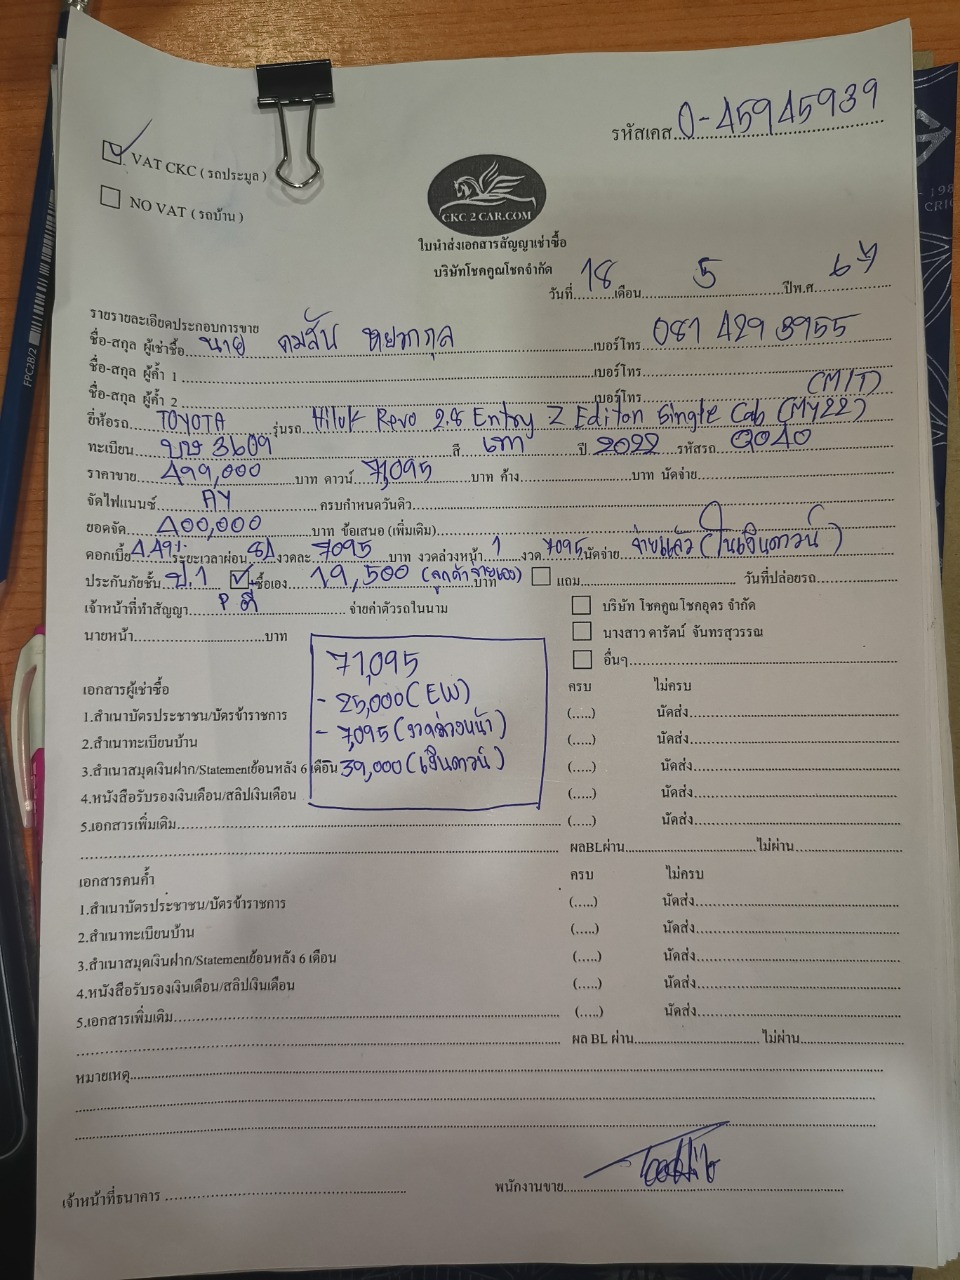 รหัสเคส 0-45945939
VAT CKC ( รถประมูล )
NO VAT ( รถบ้าน )
CKC 2 CAR.COM
ใบนำส่งเอกสารสัญญาเช่าซื้อ
บริษัทโชคคูณโชคจำกัด
วันที่ 18 เดือน 5 ปีพ.ศ.
รายรายละเอียดประกอบการขาย
ชื่อ-สกุล ผู้เช่าซื้อ นาย คมสัน หยวกกุล เบอร์โทร 081 429 3955
ชื่อ-สกุล ผู้ค้ำ 1 เบอร์โทร
ชื่อ-สกุล ผู้ค้ำ 2 เบอร์โทร
(M/T)
ยี่ห้อรถ TOYOTA รุ่นรถ Hilux Revo 2.8 Entry Z Editon Single Cab (MY22)
ทะเบียน 3609 สี เทา ปี 2022 รหัสรถ 9040
ราคาขาย 499,000 บาท ดาวน์ 71,095 บาท ค้าง บาท นัดจ่าย
จัดไฟแนนซ์ AY ครบกำหนดวันดิว
ยอดจัด 400,000 บาท ข้อเสนอ (เพิ่มเติม)
ดอกเบี้ย 4.49% ระยะเวลาผ่อน 84 งวดละ 7095 บาท งวดล่วงหน้า 1 งวด 7095 นัดจ่าย จ่ายแล้ว (ในเงินดาวน์)
ประกันภัยชั้น ป.1 ซื้อเอง 19,500 (ลูกค้าจ่ายเอง) บาท แถม วันที่ปล่อยรถ
เจ้าหน้าที่ทำสัญญา P ตี๋ จ่ายค่าตัวรถในนาม
บริษัท โชคคูณโชคอุดร จำกัด
นายหน้า บาท
นางสาว ดารัตน์ จันทรสุวรรณ
อื่นๆ
71,095
- 25,000 (EW)
- 7,095 (งวดล่วงหน้า)
39,000 (เงินดาวน์)
เอกสารผู้เช่าซื้อ ครบ ไม่ครบ
1.สำเนาบัตรประชาชน/บัตรข้าราชการ (.....) นัดส่ง
2.สำเนาทะเบียนบ้าน (.....) นัดส่ง
3.สำเนาสมุดเงินฝาก/Statementย้อนหลัง 6 เดือน (.....) นัดส่ง
4.หนังสือรับรองเงินเดือน/สลิปเงินเดือน (.....) นัดส่ง
5.เอกสารเพิ่มเติม (.....) นัดส่ง
ผลBLผ่าน ไม่ผ่าน
เอกสารคนค้ำ ครบ ไม่ครบ
1.สำเนาบัตรประชาชน/บัตรข้าราชการ (.....) นัดส่ง
2.สำเนาทะเบียนบ้าน (.....) นัดส่ง
3.สำเนาสมุดเงินฝาก/Statementย้อนหลัง 6 เดือน (.....) นัดส่ง
4.หนังสือรับรองเงินเดือน/สลิปเงินเดือน (.....) นัดส่ง
5.เอกสารเพิ่มเติม (.....) นัดส่ง
ผล BL ผ่าน ไม่ผ่าน
หมายเหตุ
เจ้าหน้าที่ธนาคาร พนักงานขาย
FPC2B/2